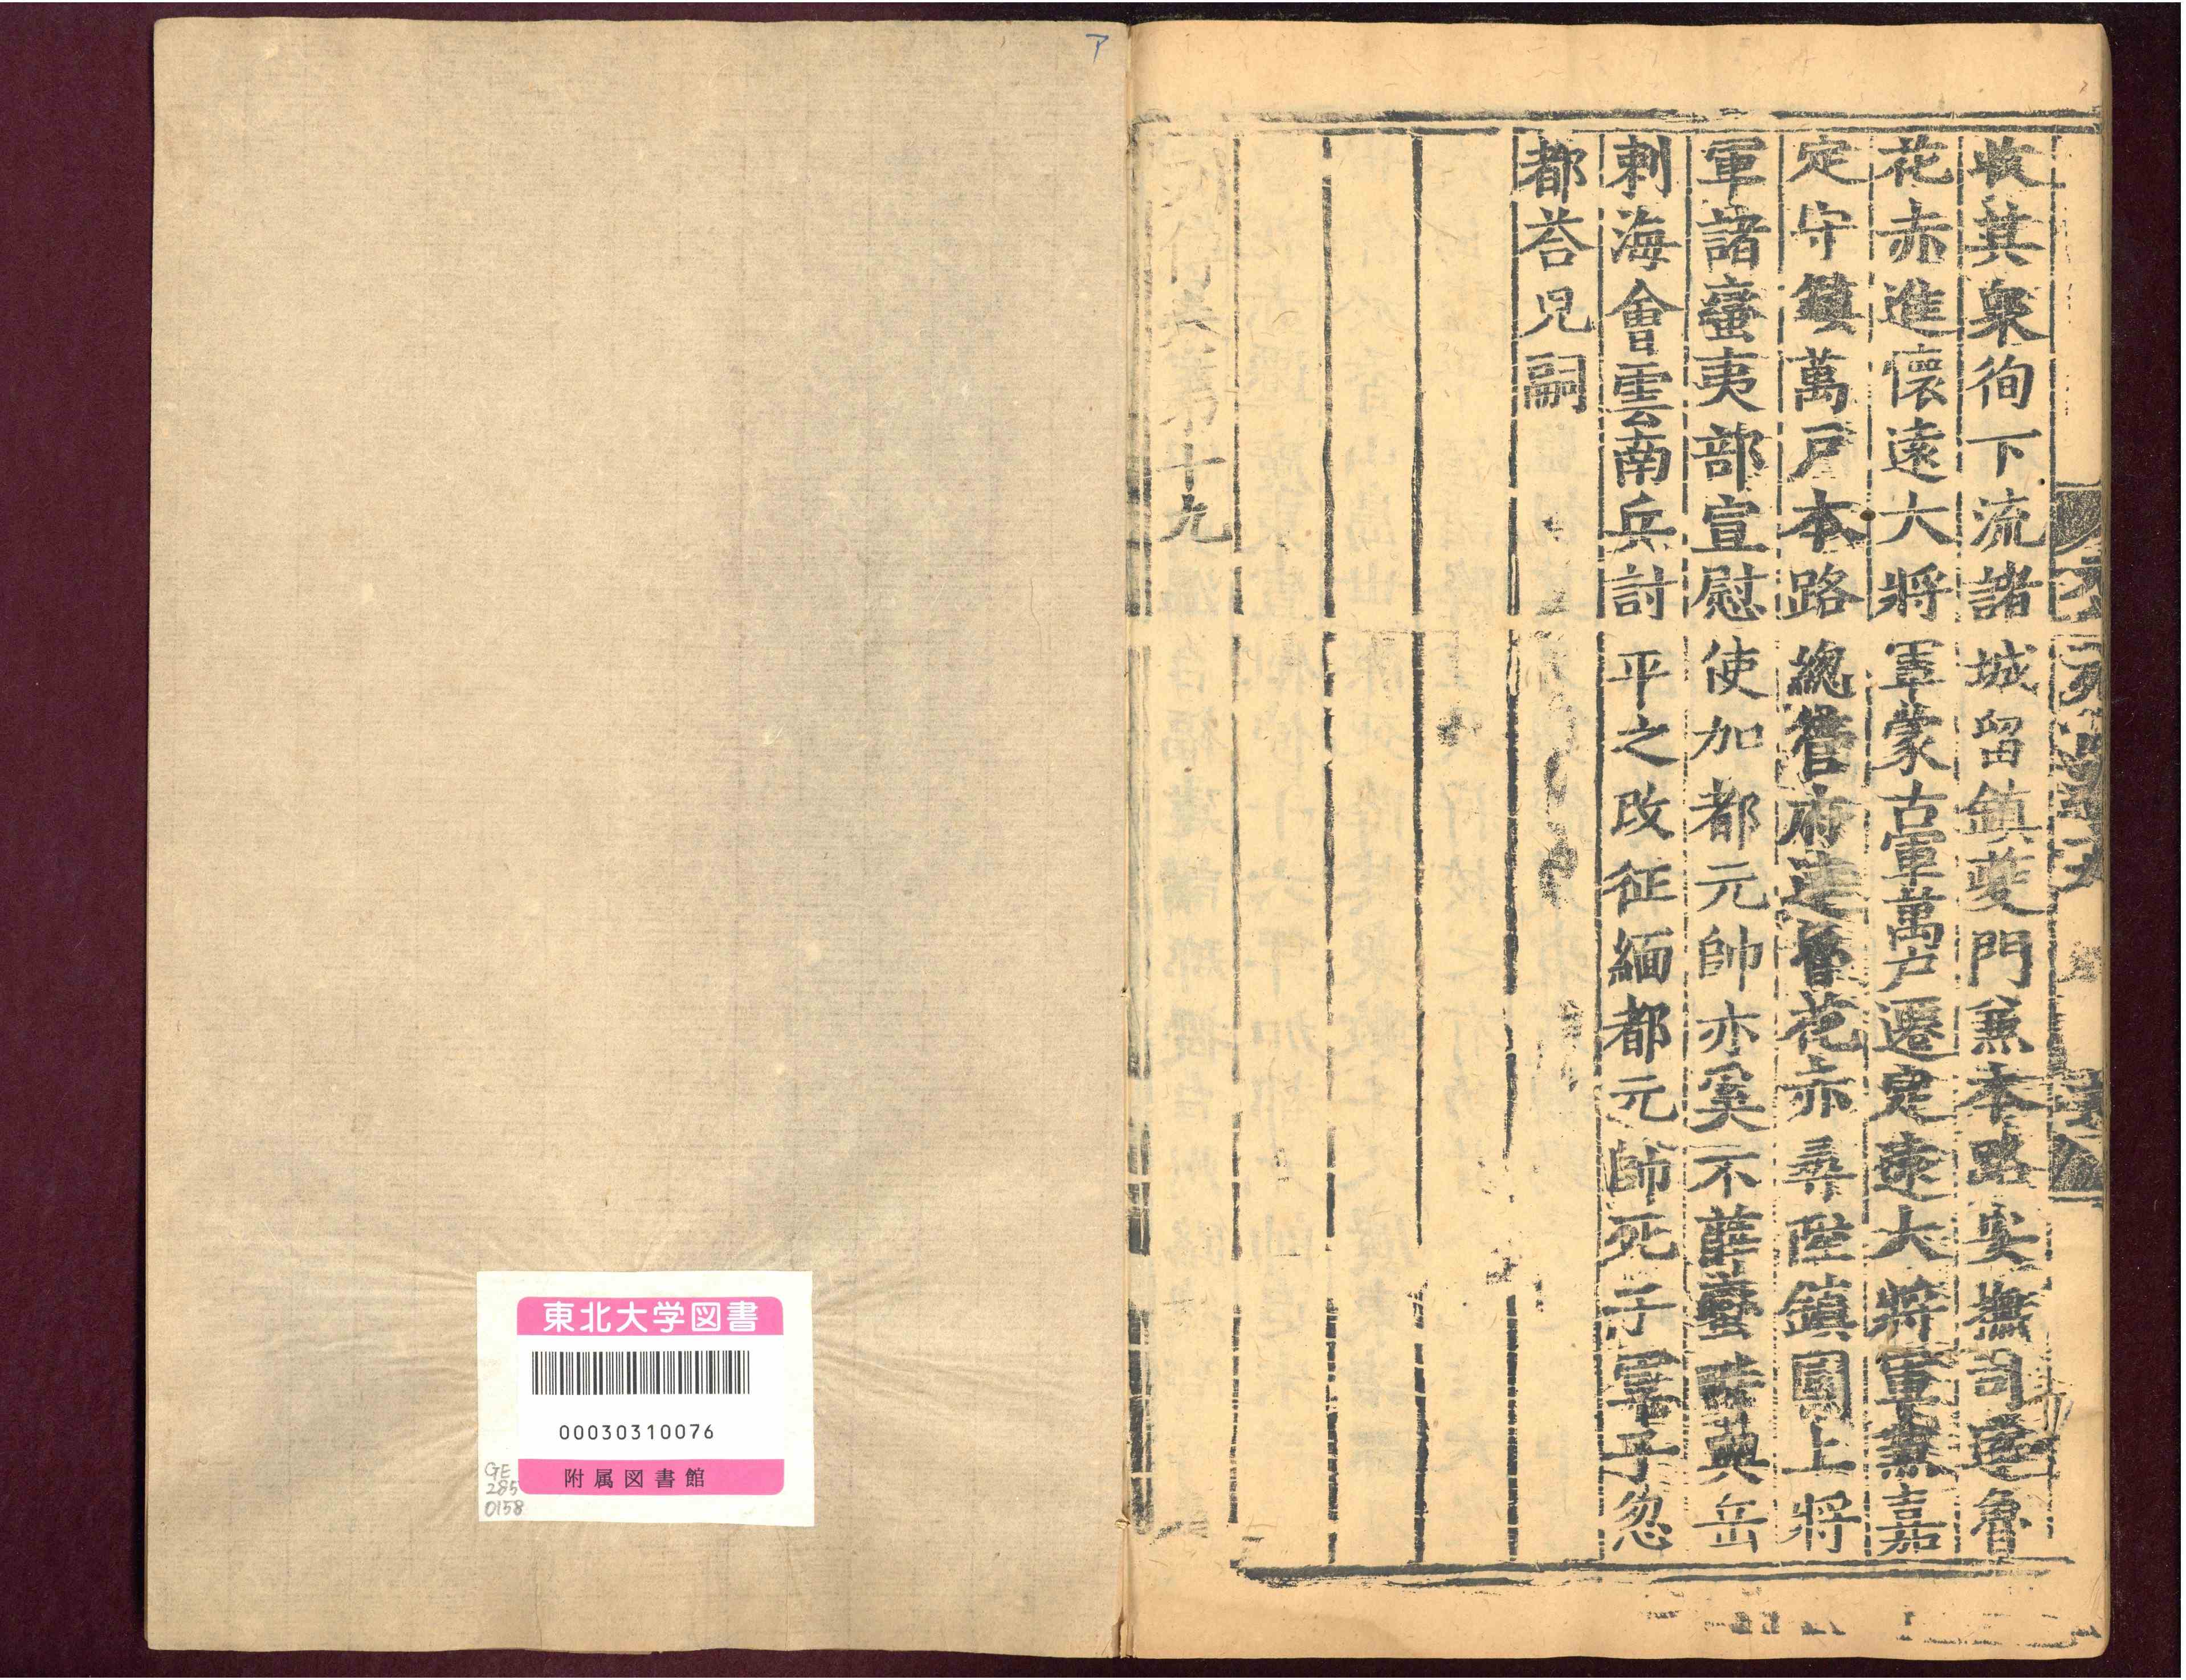 收其衆徇下流諸城留鎮夔門兼本路安撫司達魯
花赤進懷遠大將軍蒙古軍萬户遷定遠大將軍兼嘉
定守鎮萬戸本路總管府達魯花赤尋陞鎮國上將
軍諸蠻夷部宣慰使加都元帥亦奚不薛蠻叛與岳
剌海會雲南兵討平之改征緬都元帥死子軍子忽
都荅兒嗣
十九
ア
東北大学図書
00030310076
附属図書館
GE
285
0158